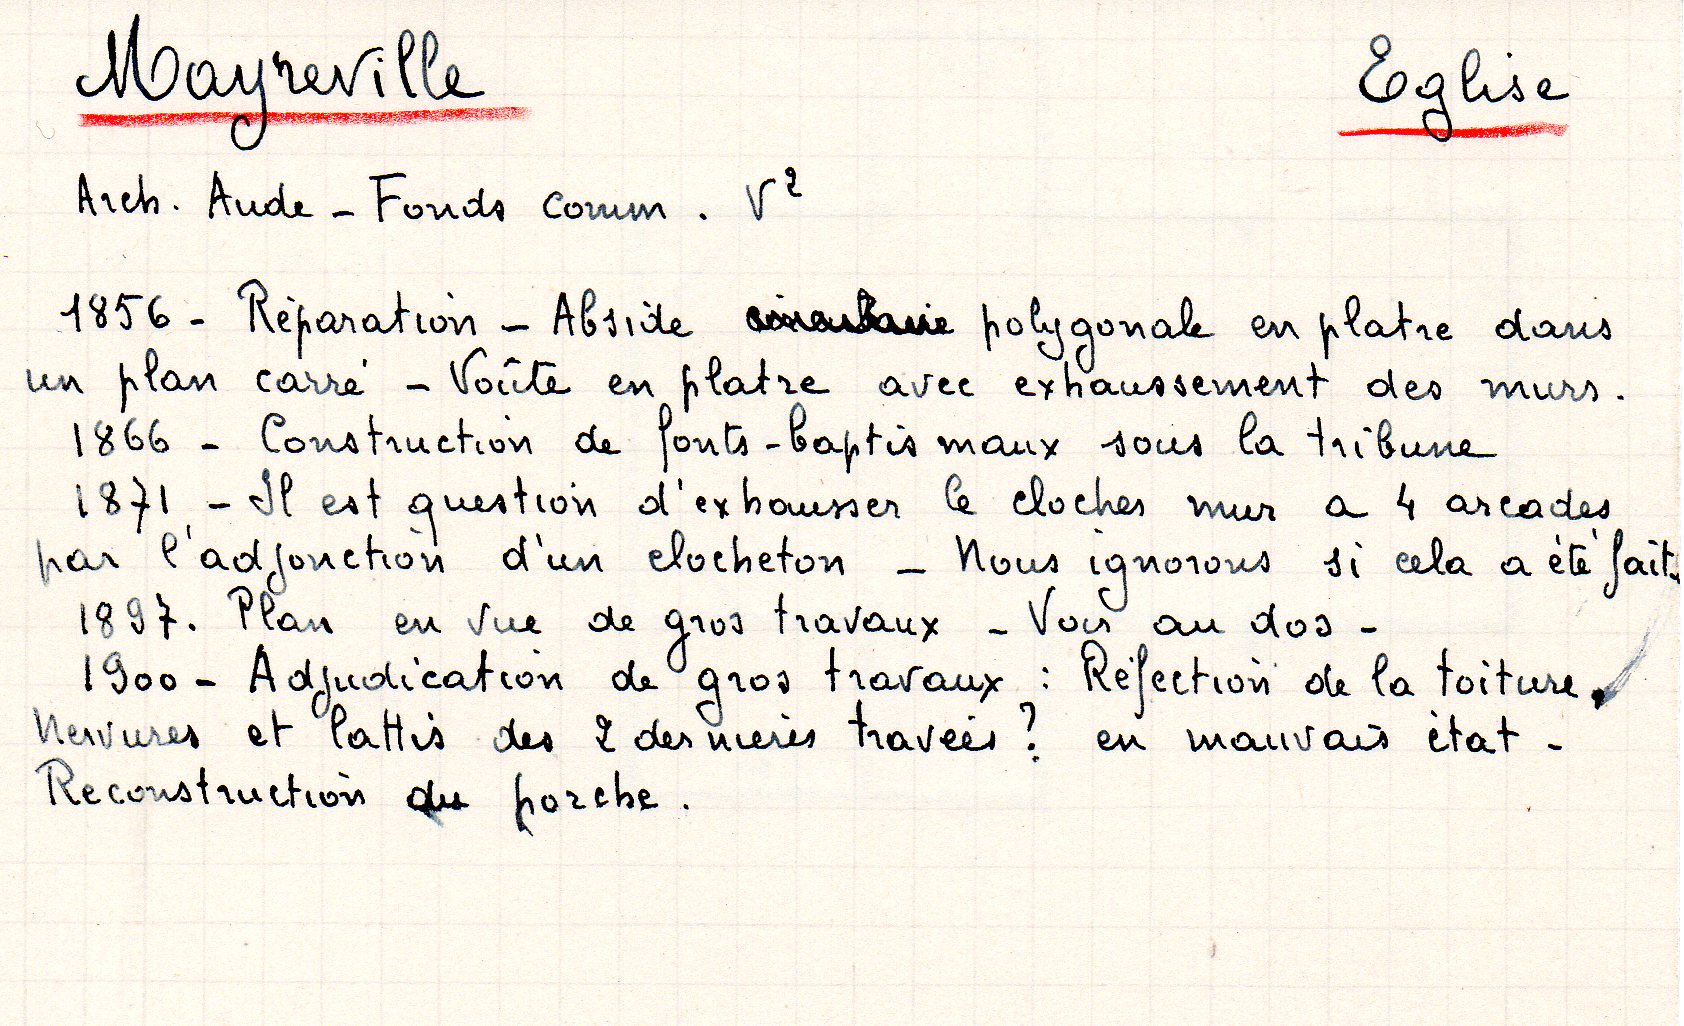 Mayreville Eglise
Arch. Aude - Fonds comm. V²
1856 - Réparation - Abside circulaire polygonale en platre dans
un plan carré - Voûte en platre avec exhaussement des murs.
1866 - Construction de fonts-baptismaux sous la tribune
1871 - Il est question d'exhausser le clocher mur a 4 arcades
par l'adjonction d'un clocheton - Nous ignorons si cela a été fait.
1897. Plan en vue de gros travaux - Voir au dos -
1900 - Adjudication de gros travaux : Réfection de la toiture.
Nervures et lattis des 2 dernières travées ? en mauvais état -
Reconstruction du porche.